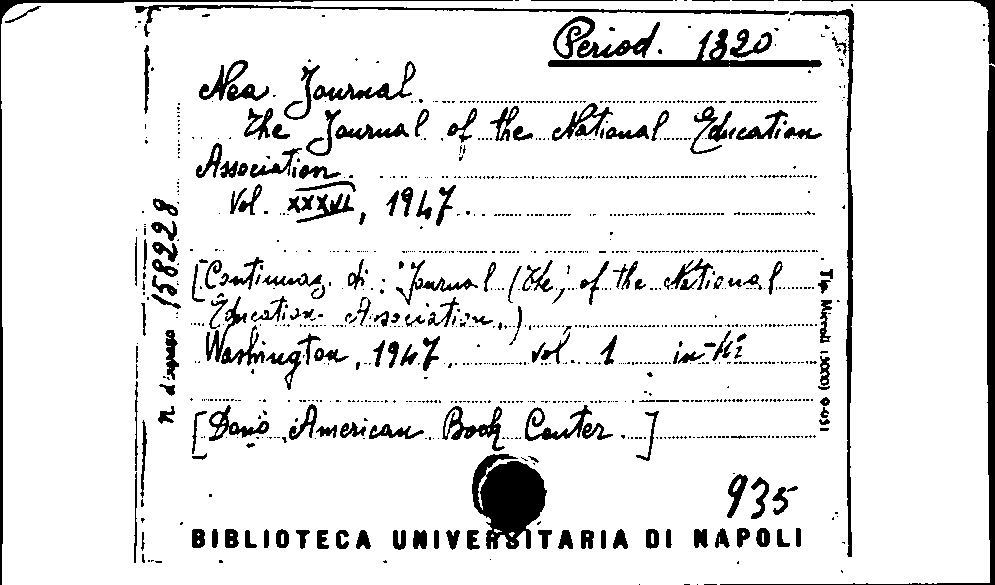 Period. 1320
Nea Journal.
The Journal of the National Education
Association.
Vol. XXXVI, 1947.
[Continuaz. di: "Journal (The) of the National
Education Association.)
Washington, 1947. vol. 1 in-4º
[Dono American Book Center.]
935
BIBLIOTECA UNIVERSITARIA DI NAPOLI
n. d'ingresso 158228
Tip.